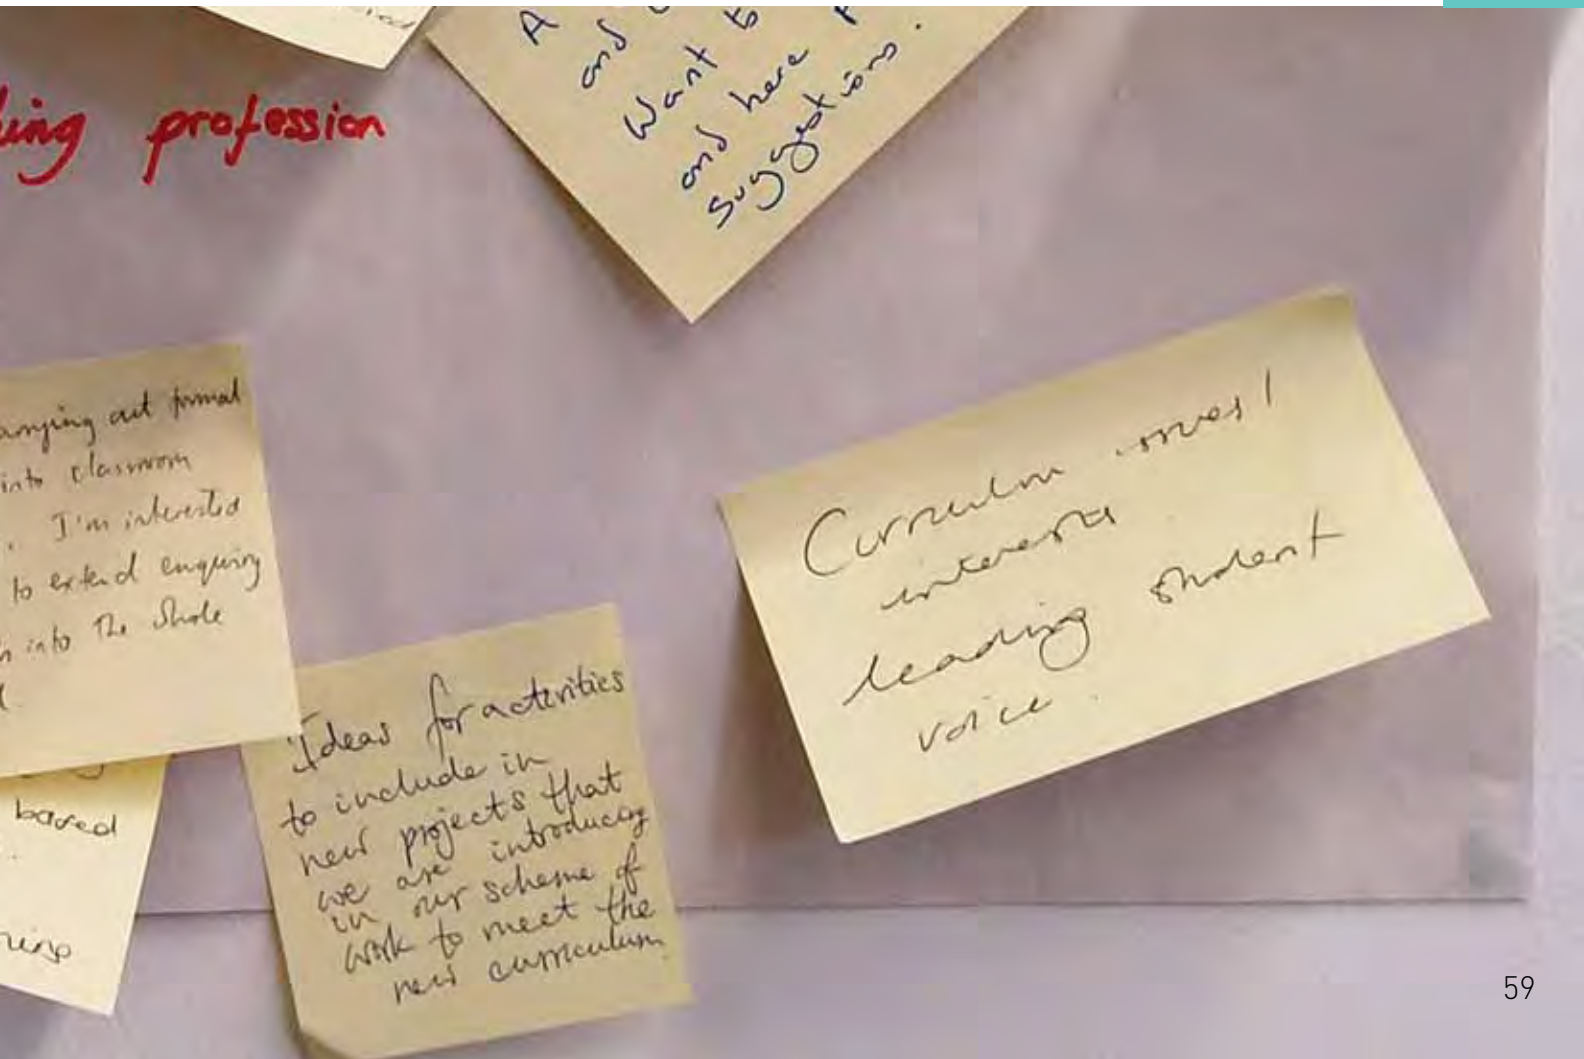 profession
A
and
Want
and here
suggestions.
out formal
into classroom
I'm interested
to extend enquiring
into the whole
based
Ideas for activities
to include in
new projects that
we are introducing
in our scheme of
work to meet the
new curriculum
Curriculum issues /
interests
leading student
voice.
59